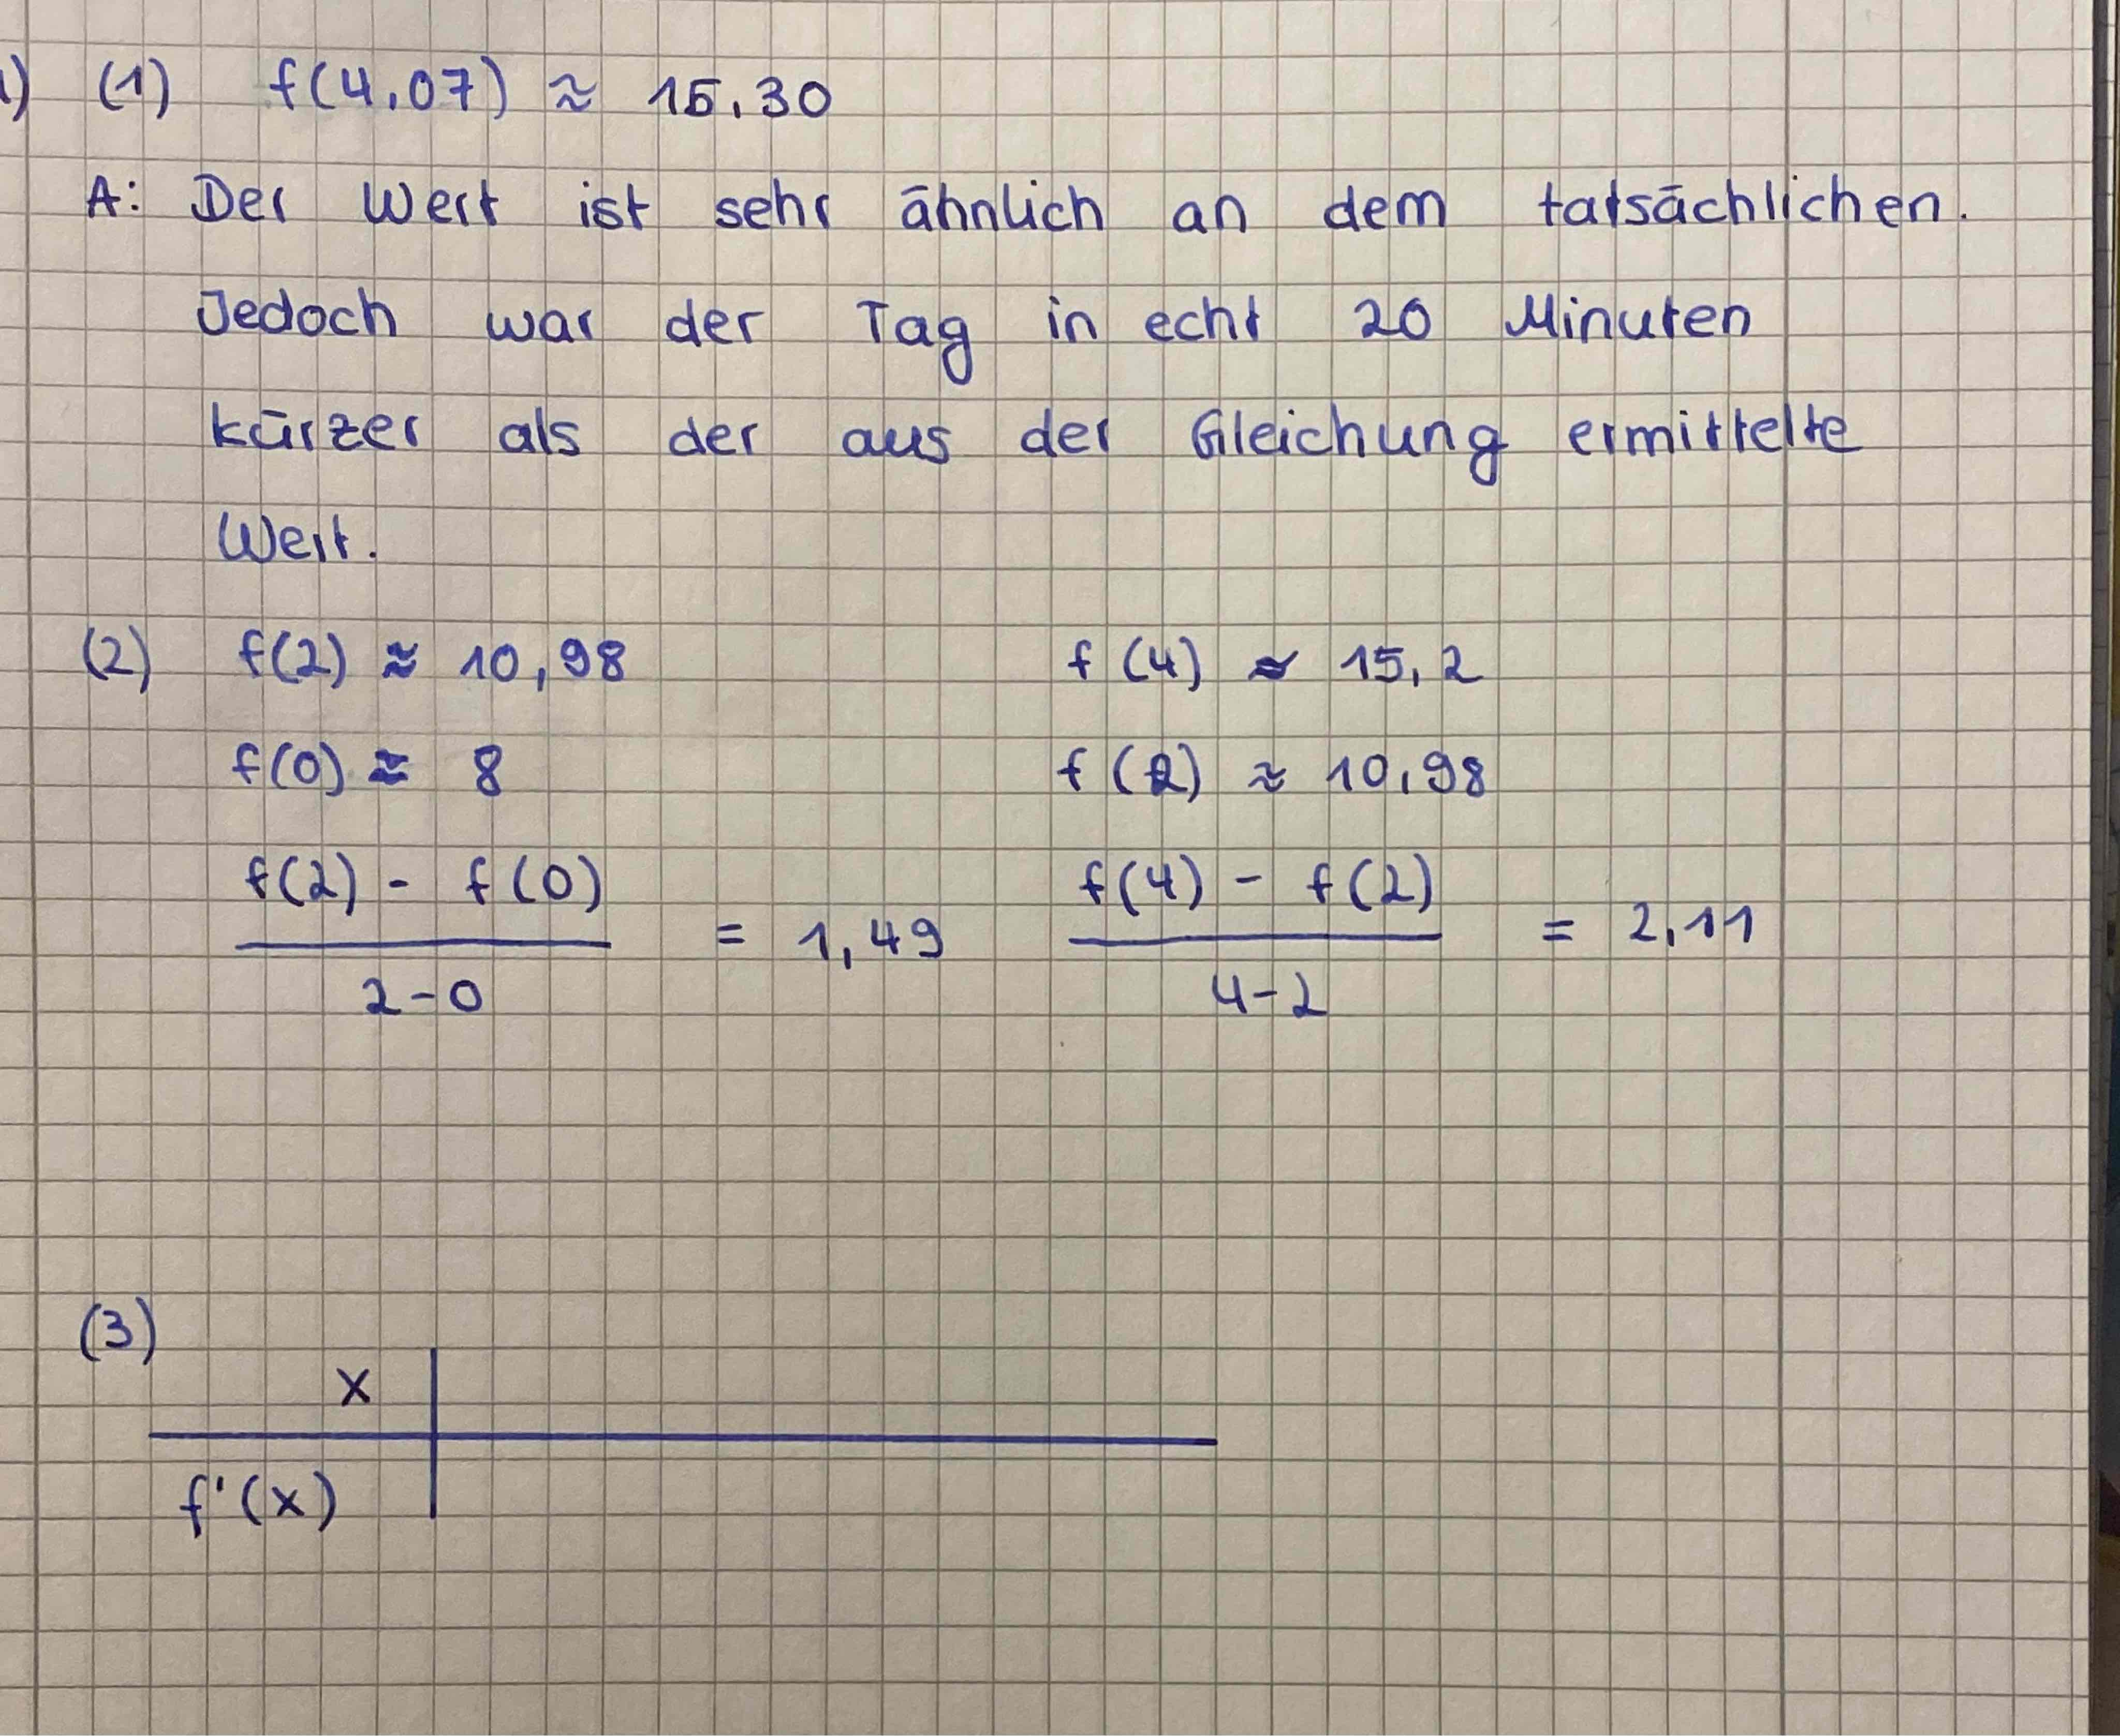 1) (1) f(4,07) ≈ 15,30
A: Der Wert ist sehr ähnlich an dem tatsächlichen.
Jedoch war der Tag in echt 20 Minuten
kürzer als der aus der Gleichung ermittelte
Wert.
(2) f(2) ≈ 10,98 f(4) ≈ 15,2
f(0) ≈ 8 f(2) ≈ 10,98
f(2) - f(0) / 2-0 = 1,49 f(4) - f(2) / 4-2 = 2,11
(3)
x
f'(x)